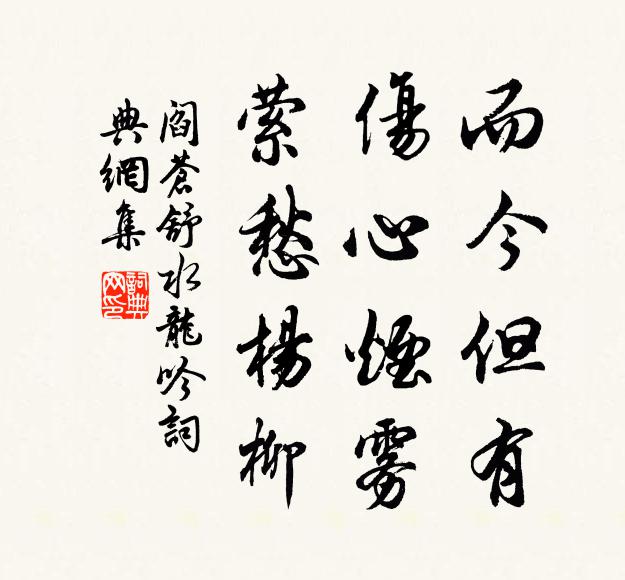 而今但有
傷心煙雾
縈愁楊柳
閻蒼舒水龍吟詞
典網集
詞典网印